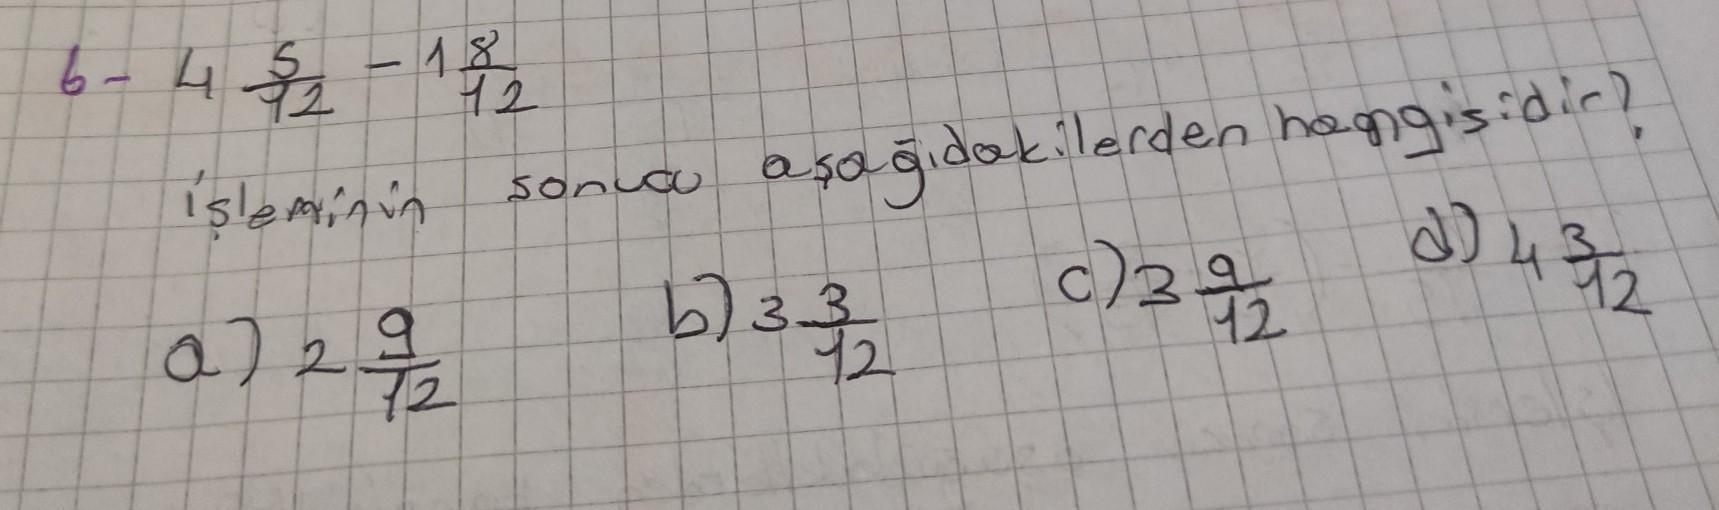 6- 4 5/12 - 1 8/12
işleminin sonucu aşağıdakilerden hangisidir?
a) 2 9/12 b) 3 3/12 c) 3 9/12 d) 4 3/12